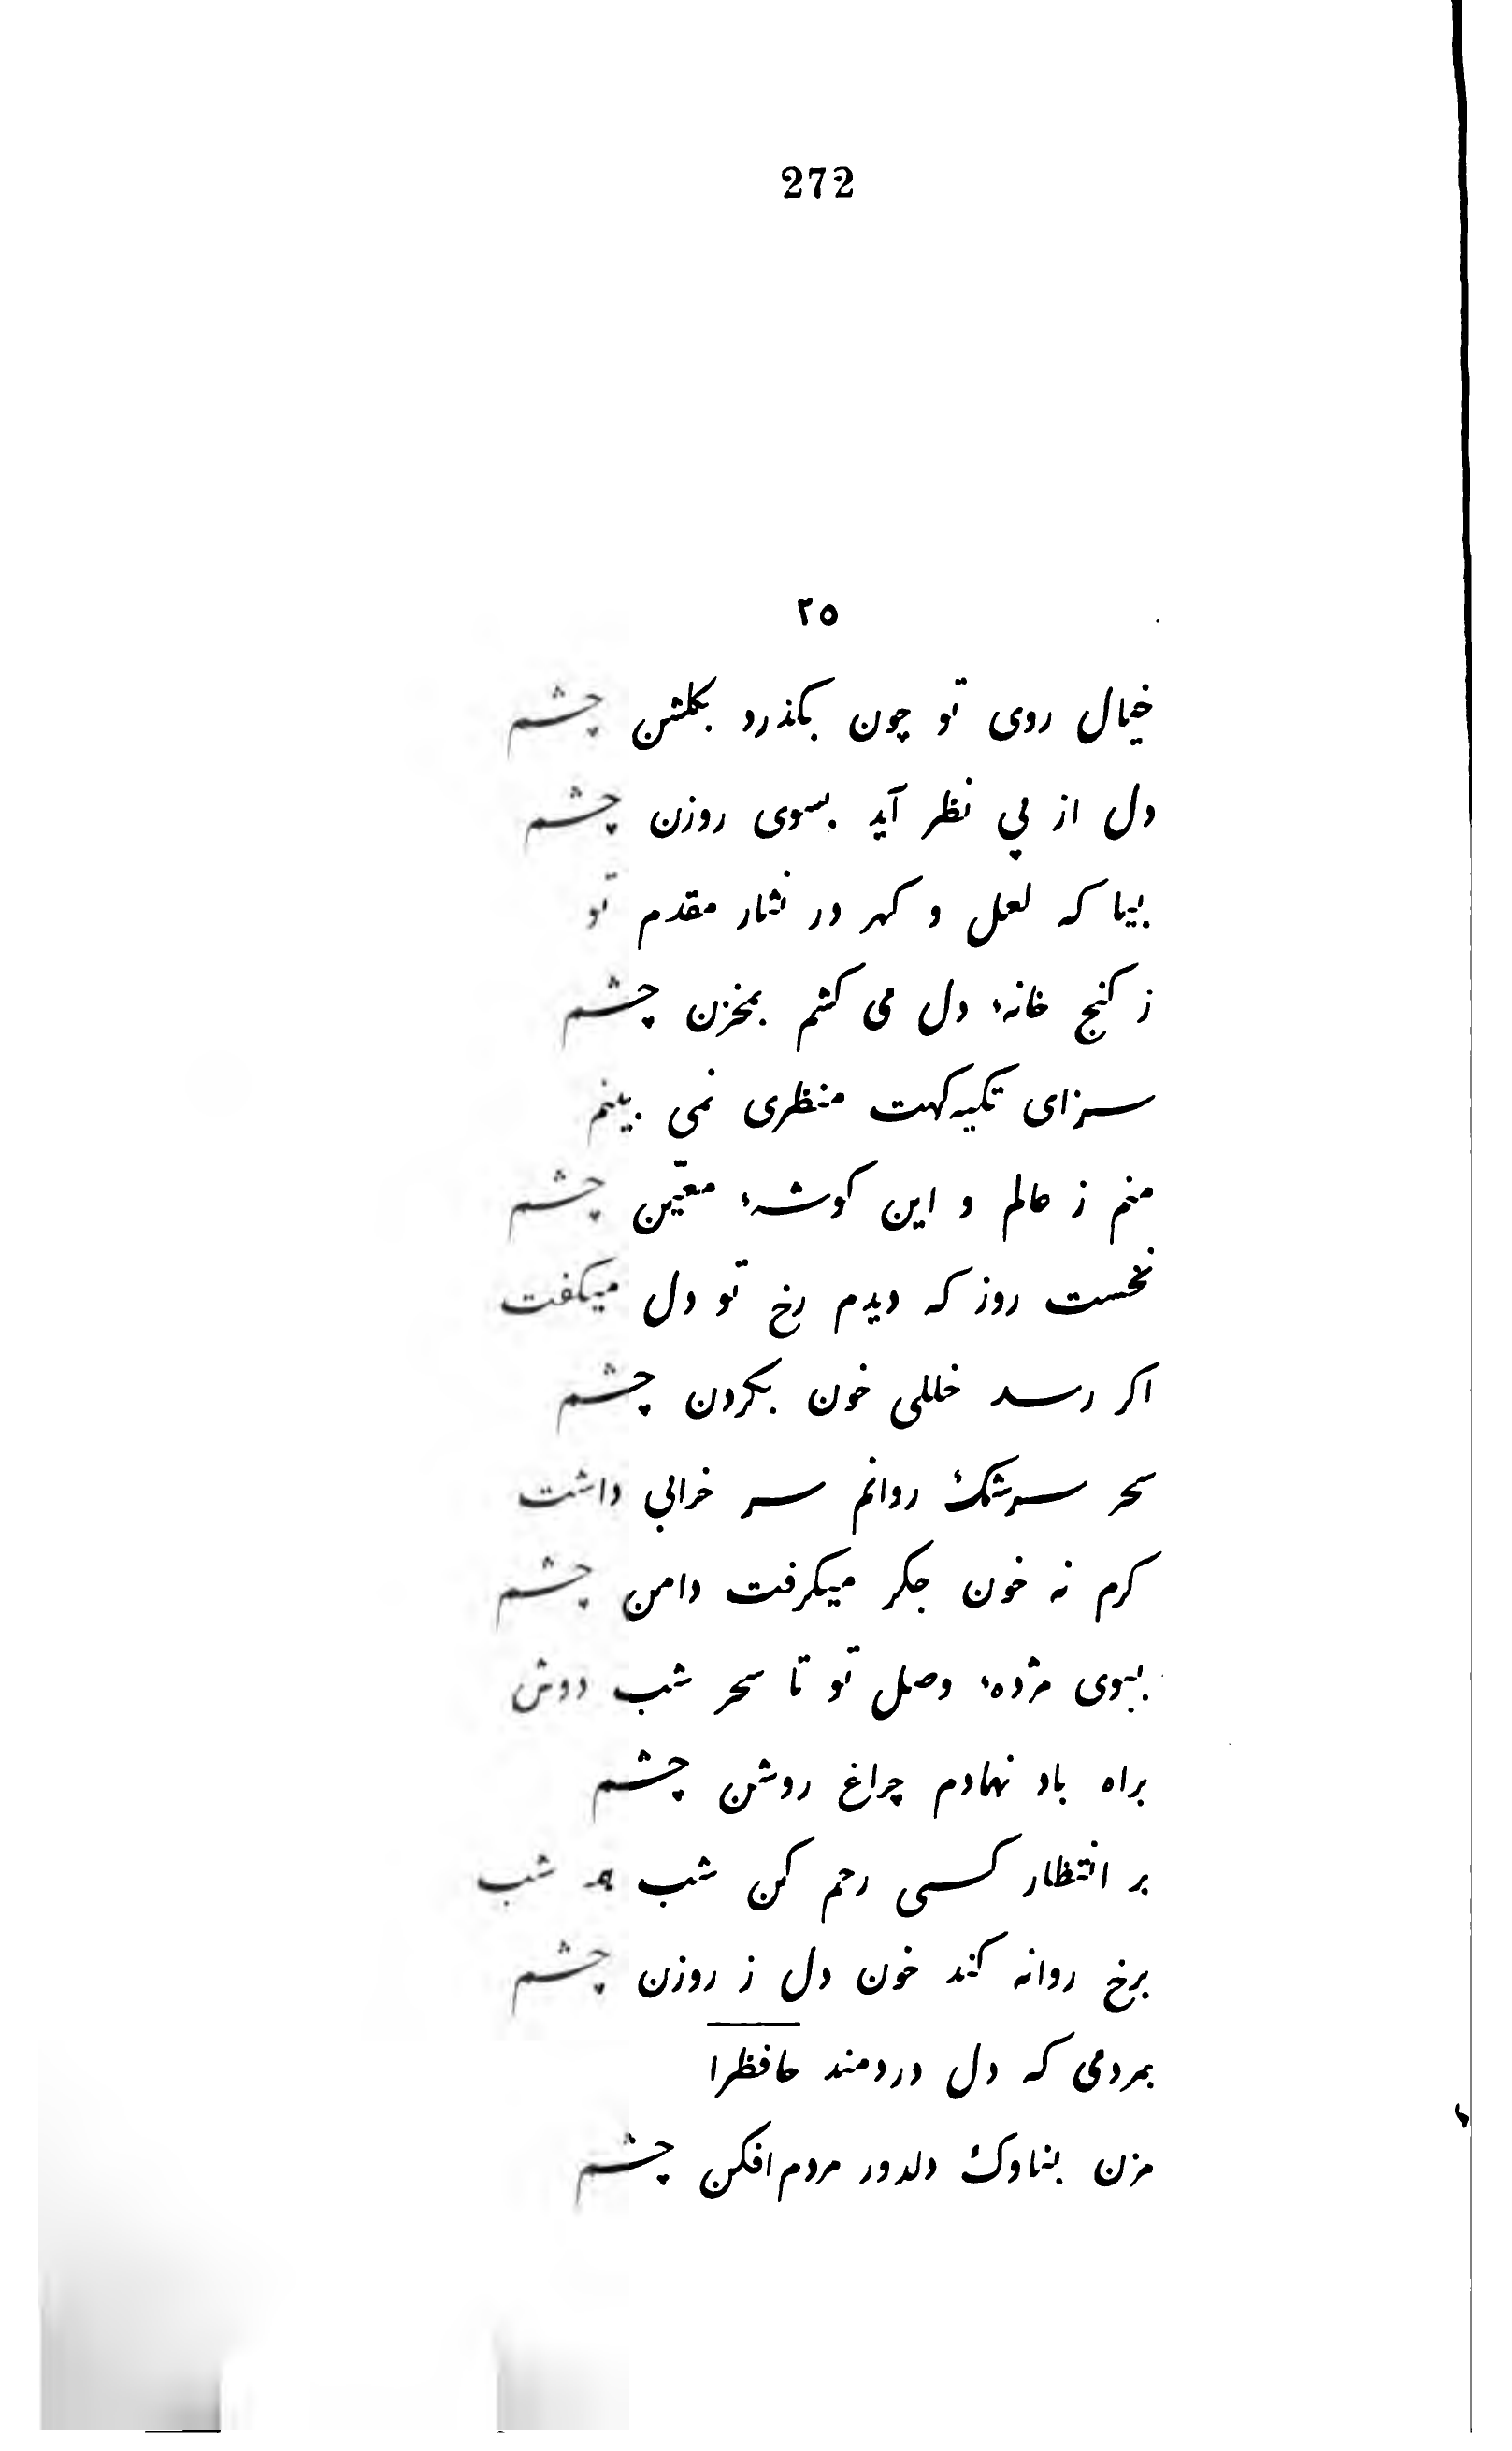 272
٢٥
خیال روی تو چون بكذرد بكلشن چشم
دل از پی نظر آید بسوی روزن چشم
بیا كه لعل و كهر در نثار مقدم تو
ز كنج خانهٔ دل می كشم بمخزن چشم
سزای تكیه‌كهت منظری نمی بینم
منم ز عالم و این كوشهٔ معیّن چشم
نخست روز كه دیدم رخ تو دل میكفت
اكر رسد خللی خون بكردن چشم
سحر سرشك روانم سر خرابی داشت
كرم نه خون جكر میكرفت دامن چشم
ببوی مژدهٔ وصل تو تا سحر شب دوش
براه باد نهادم چراغ روشن چشم
بر انتظار كسی رحم كن شب همه شب
برخ روانه كند خون دل ز روزن چشم
بمردمی كه دل دردمند حافظرا
مزن بناوك دلدور مردم‌افكن چشم